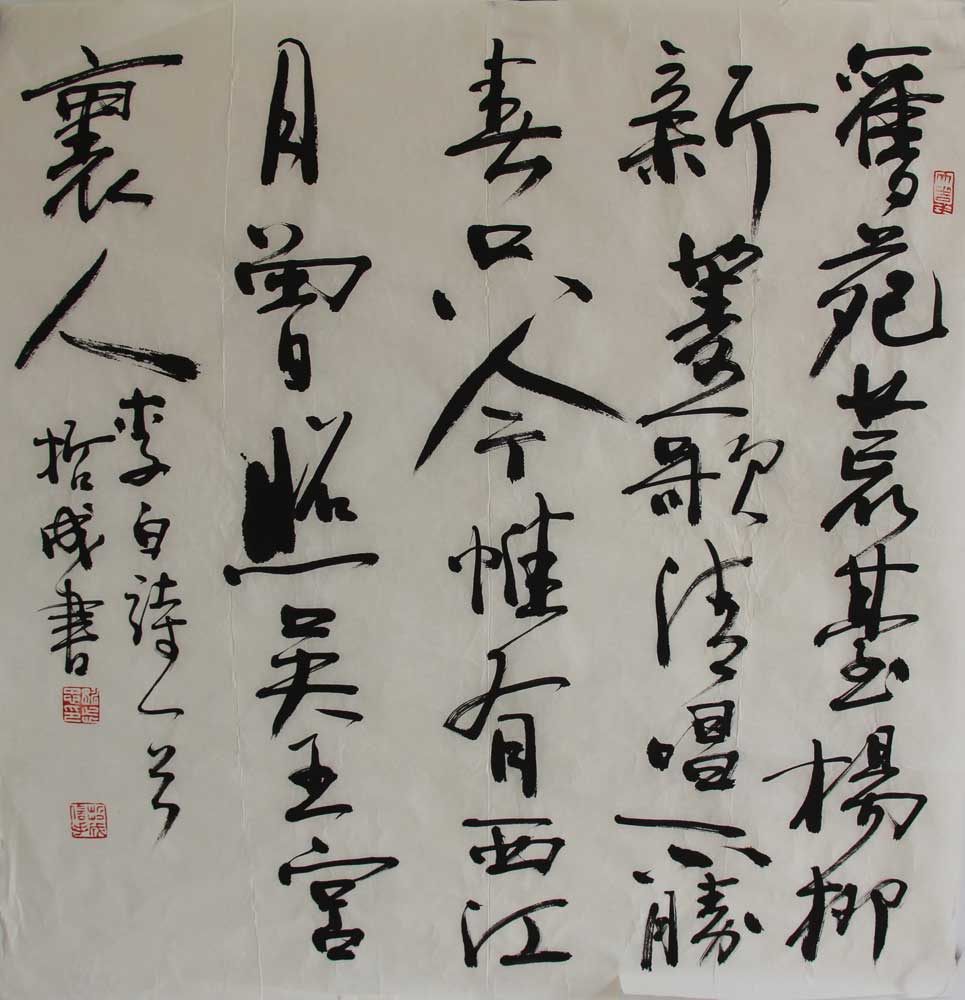 舊苑荒臺楊柳
新菱歌清唱不勝
春只今惟有西江
月曾照吴王宮
裏人
李白詩一首
哲成書